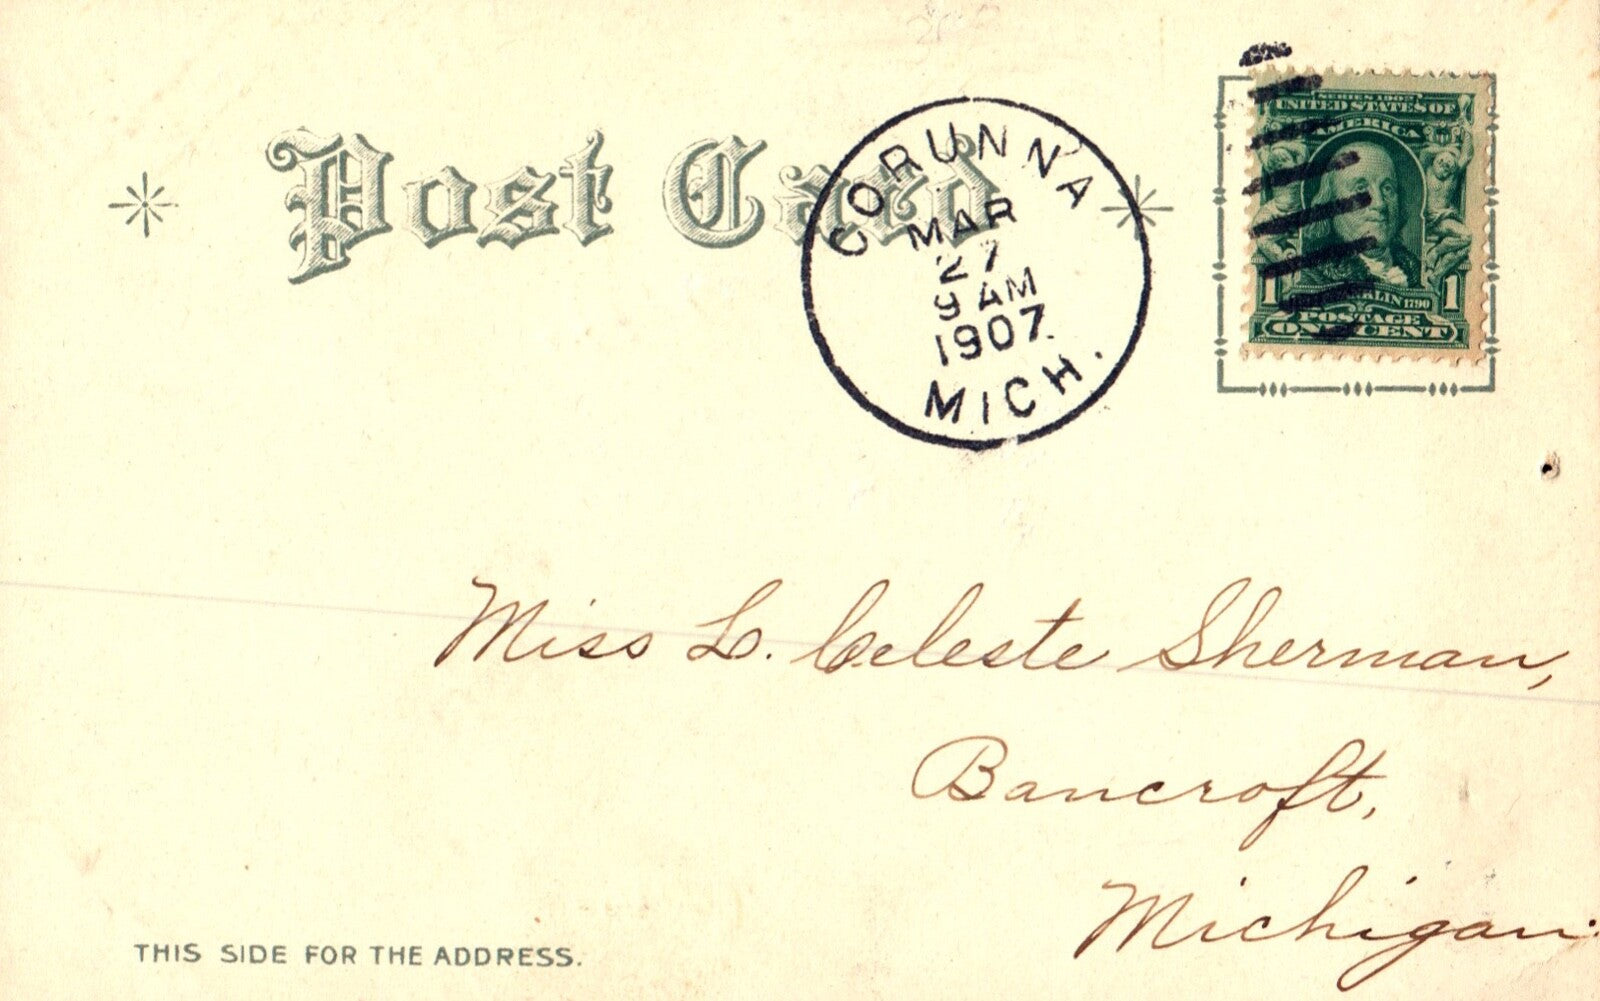 Post Card
CORUNNA
MAR
27
9 AM
1907.
MICH.
SERIES 1902
UNITED STATES OF
AMERICA
1 KLIN 1790 1
POSTAGE
ONE CENT
Miss L. Celeste Sherman,
Bancroft,
Michigan.
THIS SIDE FOR THE ADDRESS.